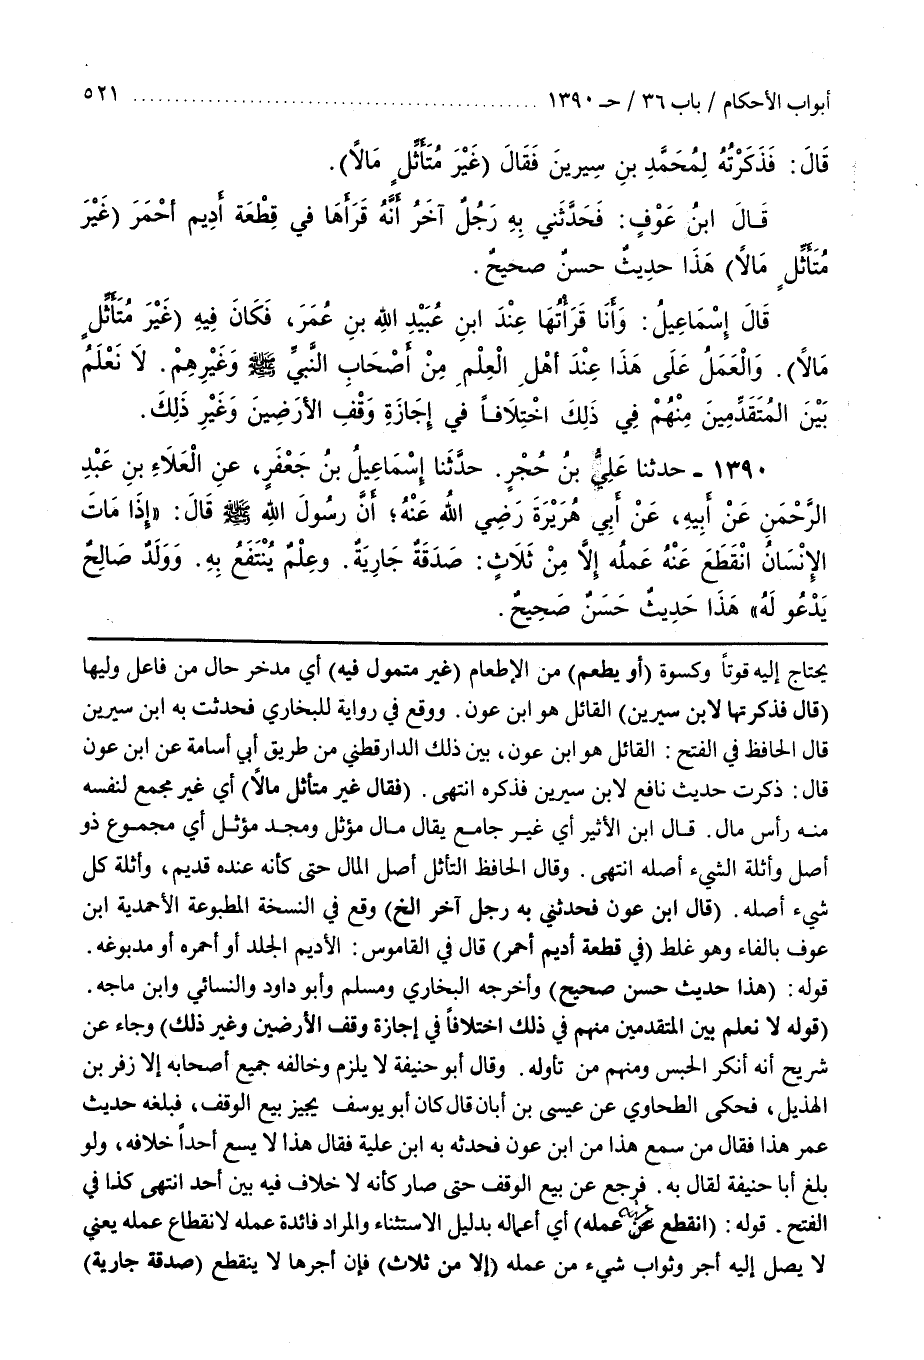 أبواب الأحكام / باب ٣٦ / حـ ١٣٩٠ ........................................ ٥٢١
قَالَ: فَذَكَرْتُهُ لِمُحَمَّدِ بنِ سِيرِينَ فَقَالَ (غَيْرَ مُتَأَثِّلٍ مَالًا).
قَـالَ ابنُ عَوْفٍ: فَحَدَّثَنِي بِهِ رَجُلٌ آخَرُ أَنَّهُ قَرَأَهَا في قِطْعَة أَدِيم أحْمَرَ (غَيْرَ
مُتَأَثِّلٍ مَالًا) هَذَا حديثٌ حسنٌ صحيحٌ.
قَالَ إِسْمَاعِيلُ: وَأَنَا قَرَأْتُهَا عِنْدَ ابنِ عُبَيْدِ اللهِ بنِ عُمَرَ، فَكَانَ فِيهِ (غَيْرَ مُتَأَثِّلٍ
مَالًا). وَالْعَمَلُ عَلَى هَذَا عِنْدَ أهْلِ الْعِلْمِ مِنْ أَصْحَابِ النَّبيِّ ﷺ وَغَيْرِهِمْ. لَا نَعْلَمُ
بَيْنَ المُتَقَدِّمِينَ مِنْهُمْ فِي ذَلِكَ اخْتِلَافاً في إجَازَةِ وَقْفِ الأرَضِينَ وَغَيْرِ ذَلِكَ.
١٣٩٠ ـ حدثنا عَلِيُّ بنُ حُجْرٍ. حدَّثَنا إسْمَاعِيلُ بنُ جَعْفَرٍ، عنِ الْعَلَاءِ بنِ عَبْدِ
الرَّحْمَنِ عَنْ أَبِيهِ، عَنْ أَبي هُرَيْرَةَ رَضِي اللهُ عَنْهُ؛ أَنَّ رسُولَ اللهِ ﷺ قَالَ: «إِذَا مَاتَ
الإنْسَانُ انْقَطَعَ عَنْهُ عَملُه إلَّا مِنْ ثَلَاثٍ: صَدَقَةٌ جَارِيَةٌ. وعِلْمٌ يُنْتَفَعُ بِهِ. وَوَلَدٌ صَالِحٌ
يَدْعُو لَهُ» هَذَا حَدِيثٌ حَسَنٌ صَحِيحٌ.
يحتاج إليه قوتاً وكسوة (أو يطعم) من الإطعام (غير متمول فيه) أي مدخر حال من فاعل وليها
(قال فذكرتها لابن سيرين) القائل هو ابن عون. ووقع في رواية للبخاري فحدثت به ابن سيرين
قال الحافظ في الفتح: القائل هو ابن عون، بين ذلك الدارقطني من طريق أبي أسامة عن ابن عون
قال: ذكرت حديث نافع لابن سيرين فذكره انتهى. (فقال غير متأثل مالاً) أي غير مجمع لنفسه
منـه رأس مال. قـال ابن الأثير أي غيـر جامـع يقال مـال مؤثل ومجـد مؤثـل أي مجمـوع ذو
أصل وأثلة الشيء أصله انتهى. وقال الحافظ التأثل أصل المال حتى كأنه عنده قديم، وأثلة كل
شيء أصله. (قال ابن عون فحدثني به رجل آخر الخ) وقع في النسخة المطبوعة الأحمدية ابن
عوف بالفاء وهو غلط (في قطعة أديم أحمر) قال في القاموس: الأديم الجلد أو أحمره أو مدبوغه.
قوله: (هذا حديث حسن صحيح) وأخرجه البخاري ومسلم وأبو داود والنسائي وابن ماجه.
(قوله لا نعلم بين المتقدمين منهم في ذلك اختلافاً في إجازة وقف الأرضين وغير ذلك) وجاء عن
شريح أنه أنكر الحبس ومنهم من تأوله. وقال أبو حنيفة لا يلزم وخالفه جميع أصحابه إلا زفر بن
الهذيل، فحكى الطحاوي عن عيسى بن أبان قال كان أبو يوسف يجيز بيع الوقف، فبلغه حديث
عمر هذا فقال من سمع هذا من ابن عون فحدثه به ابن علية فقال هذا لا يسع أحداً خلافه، ولو
بلغ أبا حنيفة لقال به. فرجع عن بيع الوقف حتى صار كأنه لا خلاف فيه بين أحد انتهى كذا في
الفتح. قوله: (انقطع عن عمله) أي أعماله بدليل الاستثناء والمراد فائدة عمله لانقطاع عمله يعني
لا يصل إليه أجر وثواب شيء من عمله (إلا من ثلاث) فإن أجرها لا ينقطع (صدقة جارية)